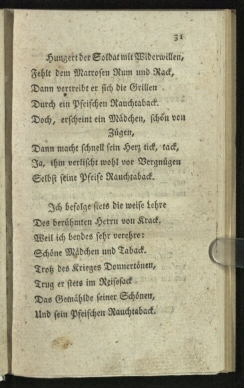 31
Hungert der Soldat mit Widerwillen,
Fehlt dem Matrosen Rum und Rack,
Dann vertreibt er sich die Grillen
Durch ein Pfeifchen Rauchtaback.
Doch, erscheint ein Mädchen, schön von
Zügen,
Dann macht schnell sein Herz tick, tack,
Ja, ihm verlischt wohl vor Vergnügen
Selbst seine Pfeife Rauchtaback.
Ich befolge stets die weise Lehre
Des berühmten Herrn von Krack,
Weil ich beydes sehr verehre:
Schöne Mädchen und Taback.
Trotz des Krieges Donnertönen,
Trug er stets im Reisesack
Das Gemählde seiner Schönen,
Und sein Pfeifchen Rauchtaback.